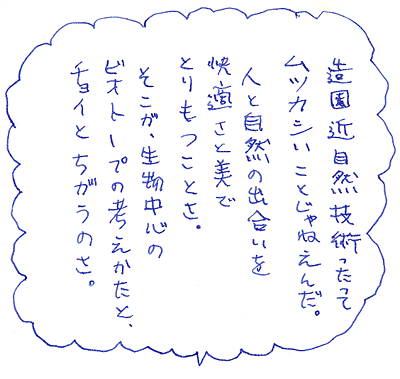 造園近自然技術ったって
ムツカシいことじゃねえんだ。
人と自然の出合いを
快適さと美で
とりもつことさ。
そこが、生物中心の
ビオトープの考えかたと、
チョイとちがうのさ。